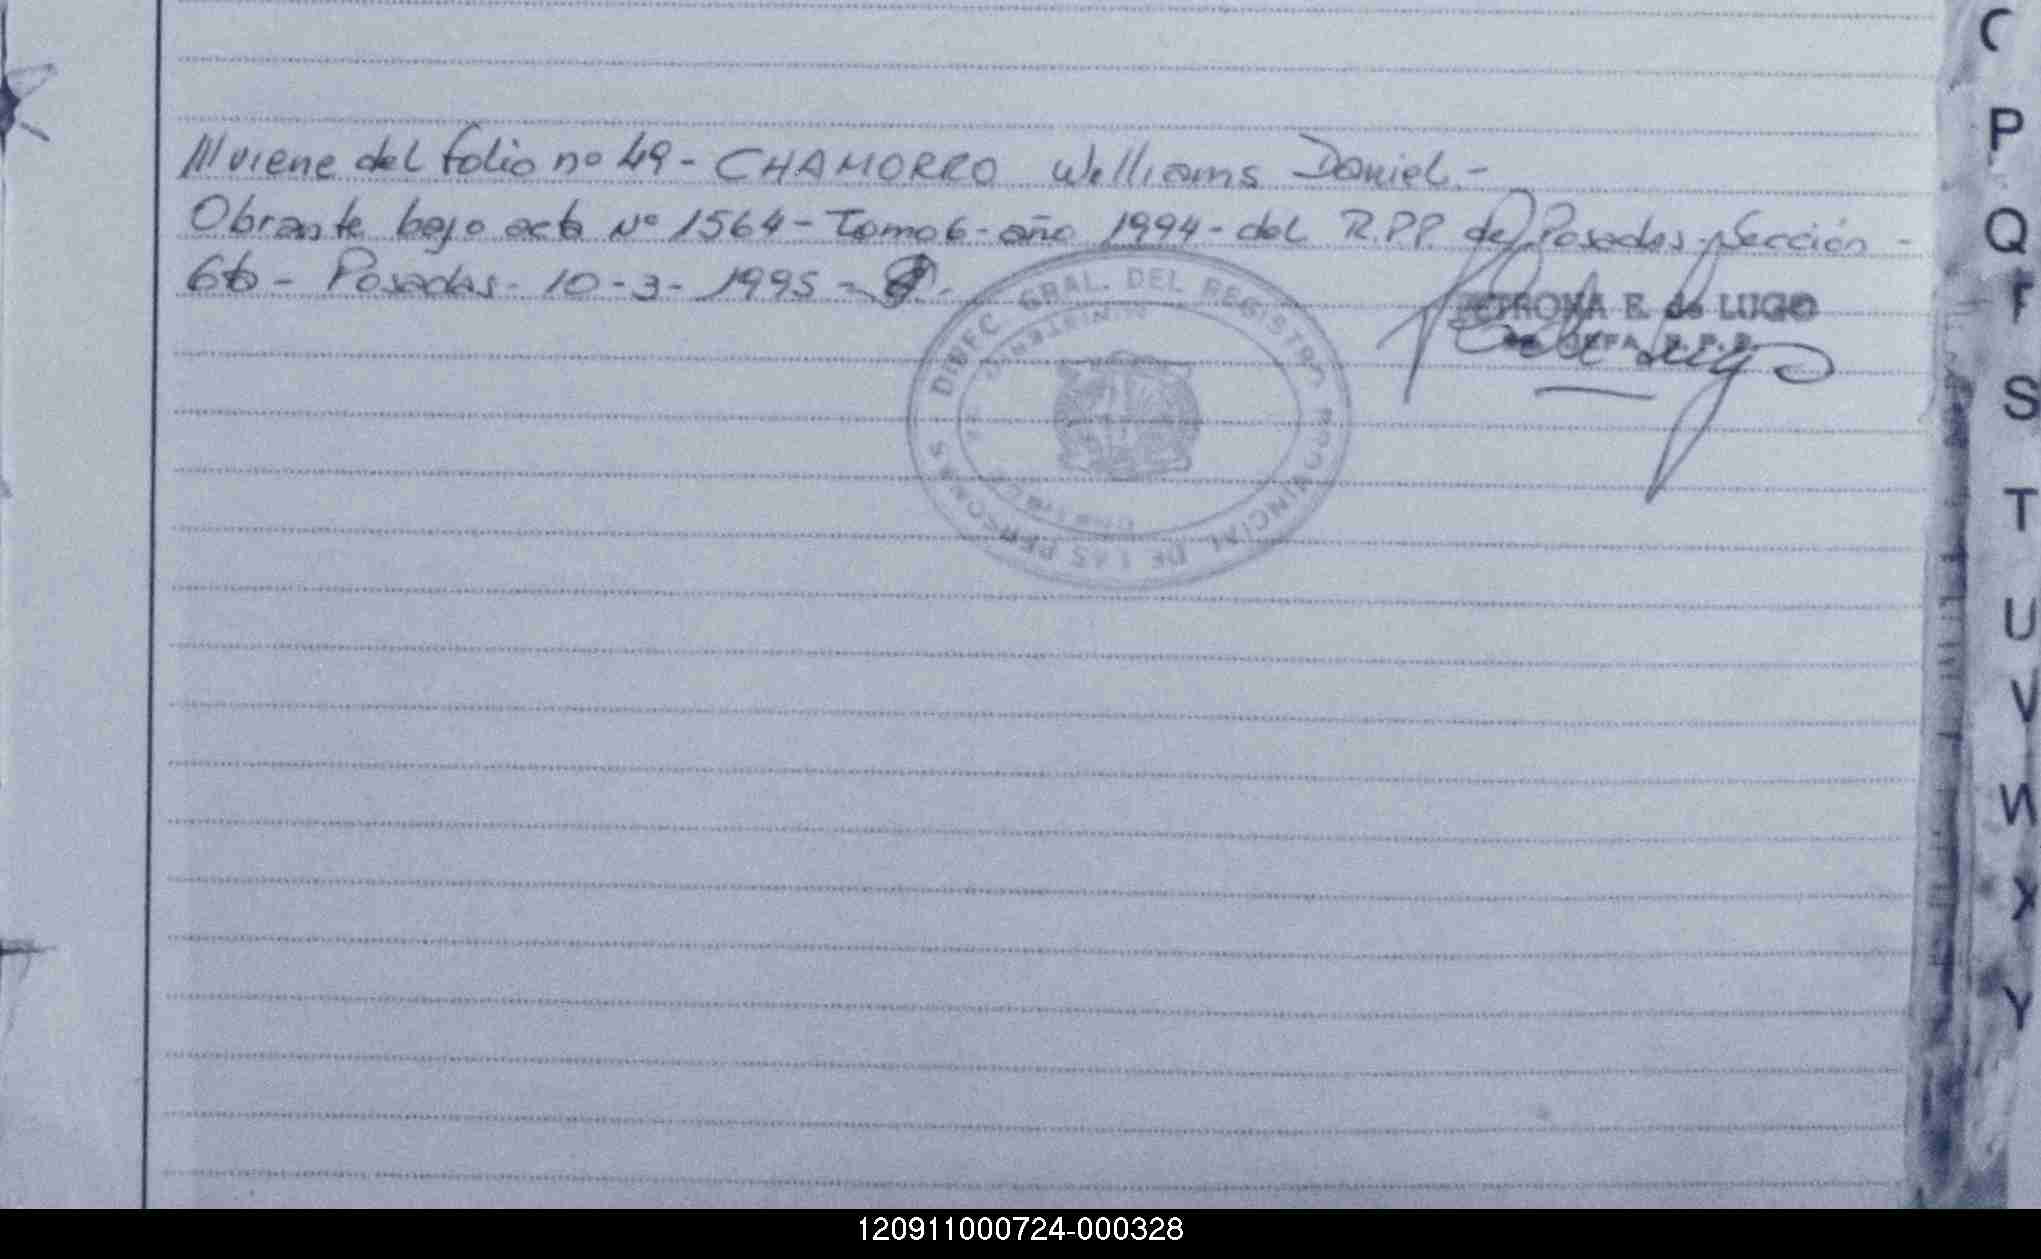 /// viene del folio nº 49 - CHAMORRO Williams Daniel.-
Obrante bajo acta Nº 1564 - Tomo 6 - año 1994 - del R.P.P. de Posadas - Sección -
6ta - Posadas - 10 - 3 - 1995 -
DIREC. GRAL. DEL REGISTRO PROVINCIAL DE LAS PERSONAS
MINISTERIO
PETRONA E. de LUGO
JEFA R.P.P.
C
P
Q
S
T
U
V
W
X
Y
120911000724-000328